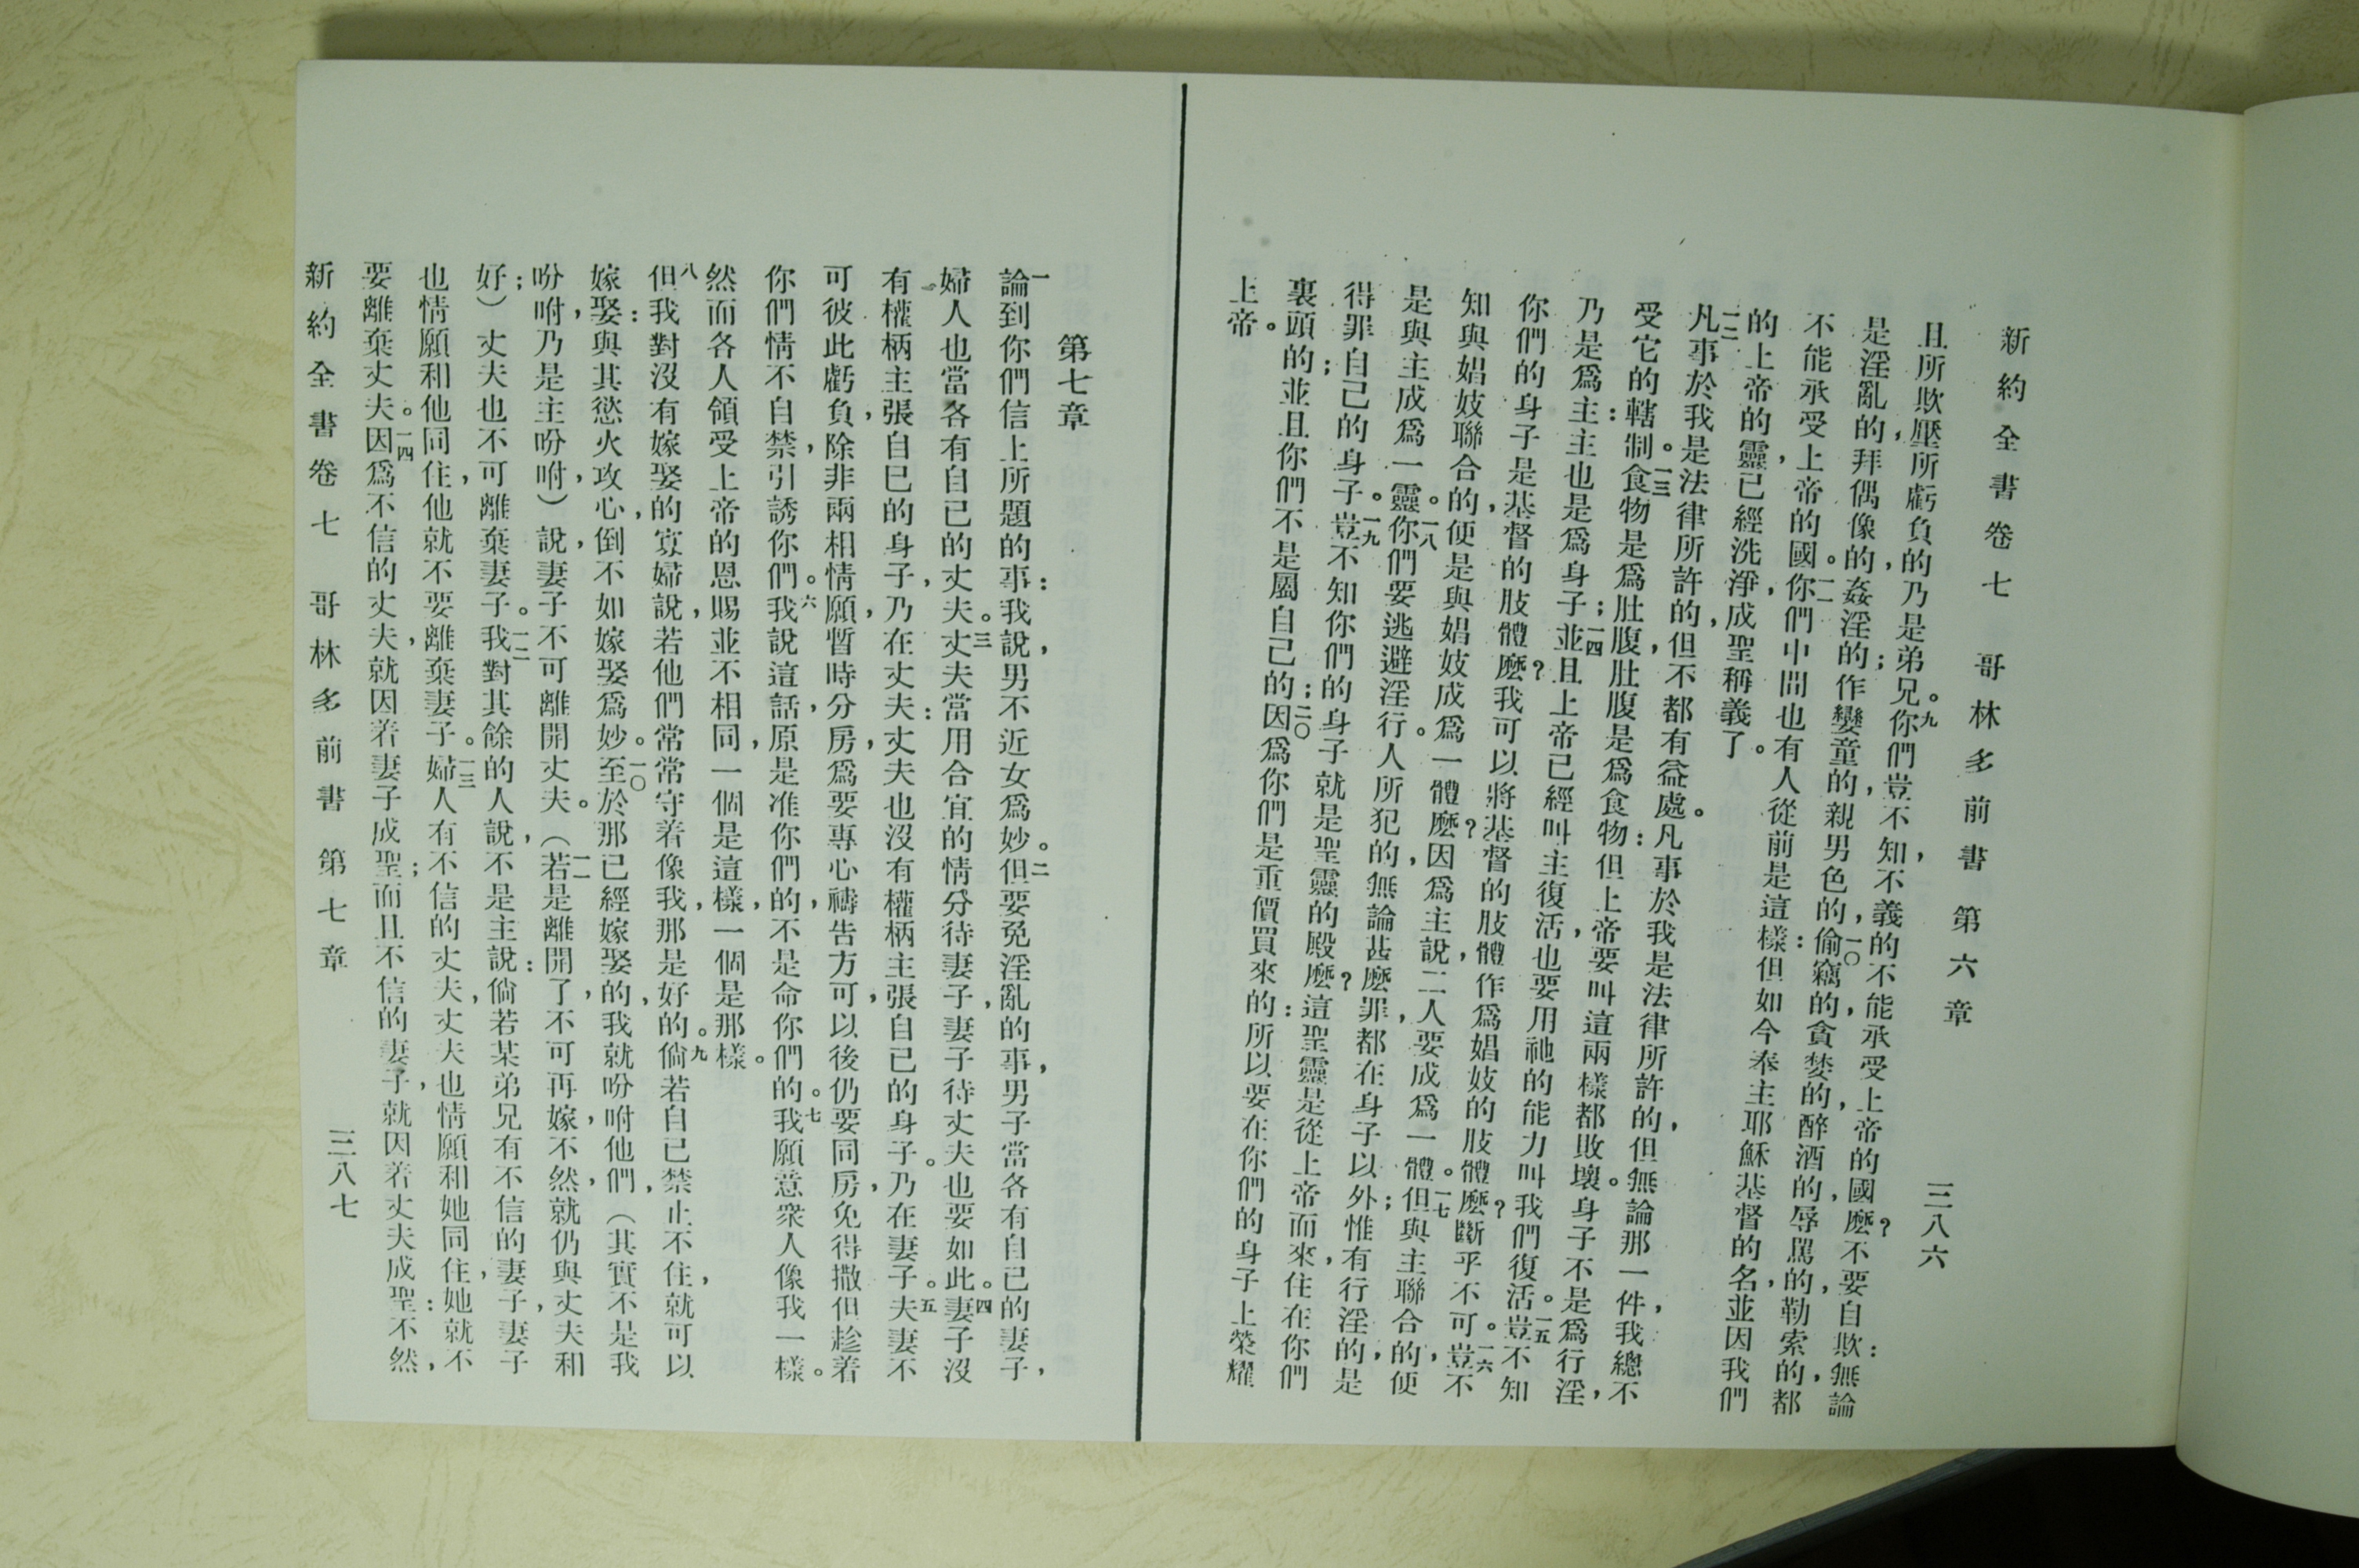 新約全書卷七 哥林多前書 第六章 三八六
且所欺壓,所虧負的乃是弟兄。九你們豈不知,不義的不能承受上帝的國麽?不要自欺:無論
是淫亂的,拜偶像的,姦淫的;作孌童的,親男色的,一〇偷竊的,貪婪的,醉酒的,辱罵的,勒索的,都
不能承受上帝的國。一一你們中間也有人從前是這樣:但如今奉主耶穌基督的名,並因我們
的上帝的靈,已經洗淨,成聖,稱義了。
一二凡事於我是法律所許的,但不都有益處。凡事於我是法律所許的,但無論那一件,我總不
受它的轄制。一三食物是爲肚腹,肚腹是爲食物:但上帝要叫這兩樣都敗壞。身子不是爲行淫,
乃是爲主:主也是爲身子;一四並且上帝已經叫主復活,也要用祂的能力叫我們復活。一五豈不知
你們的身子是基督的肢體麽?我可以將基督的肢體作爲娼妓的肢體麽?斷乎不可。一六豈不
知與娼妓聯合的,便是與娼妓成爲一體麽?因爲主說,二人要成爲一體。一七但與主聯合的,便
是與主成爲一靈。一八你們要逃避淫行。人所犯的,無論甚麽罪,都在身子以外;惟有行淫的,是
得罪自己的身子。一九豈不知你們的身子就是聖靈的殿麽?這聖靈是從上帝而來,住在你們
裏頭的;並且你們不是屬自己的;二〇因爲你們是重價買來的:所以要在你們的身子上榮耀
上帝。
第七章
一論到你們信上所題的事:我說,男不近女爲妙。二但要免淫亂的事,男子當各有自已的妻子,
婦人也當各有自已的丈夫。三丈夫當用合宜的情分待妻子,妻子待丈夫也要如此。四妻子沒
有權柄主張自巳的身子,乃在丈夫:丈夫也沒有權柄主張自己的身子。乃在妻子。五夫妻不
可彼此虧負,除非兩相情願,暫時分房,爲要專心禱告方可,以後仍要同房,免得撒但趁着
你們情不自禁,引誘你們。六我說這話,原是准你們的,不是命你們的。七我願意衆人像我一樣。
然而各人領受上帝的恩賜,並不相同,一個是這樣,一個是那樣。
八但我對沒有嫁娶的,寡婦說,若他們常常守着像我,那是好的。九倘若自已禁止不住,就可以
嫁娶:與其慾火攻心,倒不如嫁娶爲妙。一〇至於那已經嫁娶的,我就吩咐他們,(其實不是我
吩咐,乃是主吩咐,)說,妻子不可離開丈夫。一一(若是離開了,不可再嫁,不然,就仍與丈夫和
好;)丈夫也不可離棄妻子。一二我對其餘的人說,不是主說:倘若某弟兄有不信的妻子,妻子
也情願和他同住,他就不要離棄妻子。一三婦人有不信的丈夫,丈夫也情願和她同住,她就不
要離棄丈夫。一四因爲不信的丈夫,就因着妻子成聖;而且不信的妻子,就因着丈夫成聖:不然,
新約全書卷七 哥林多前書 第七章 三八七